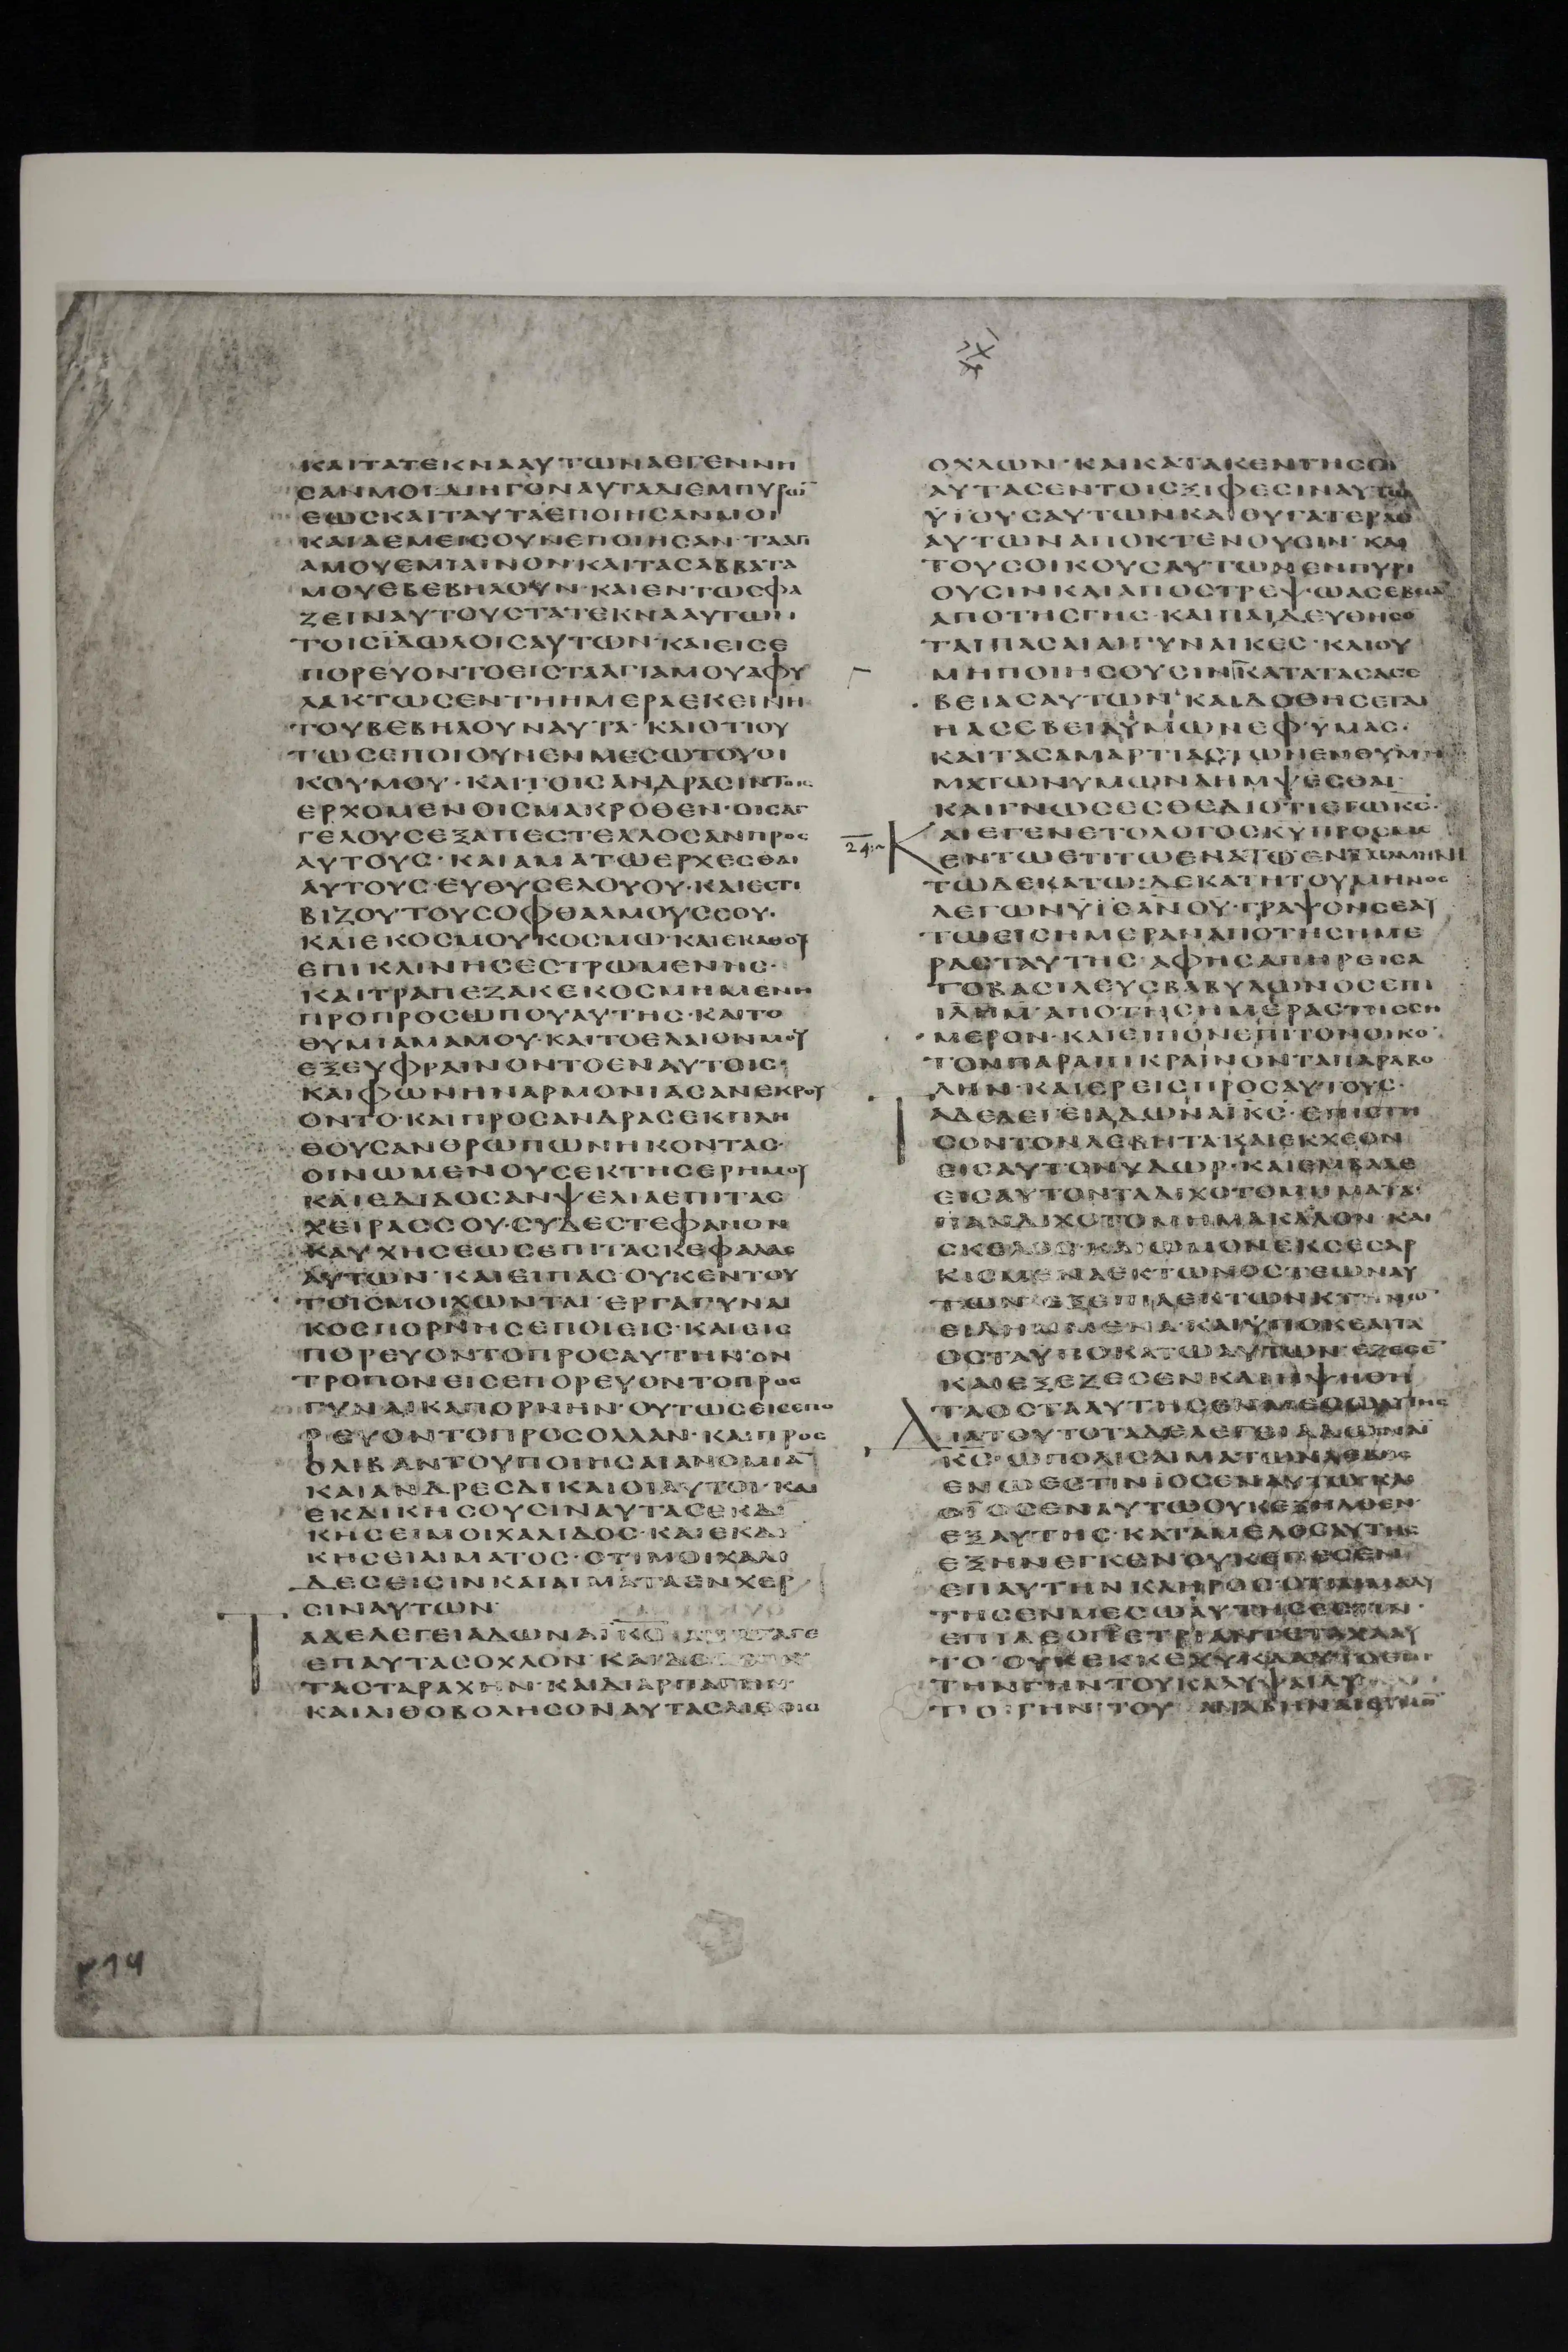 ΚΑΙΤΑΤΕΚΝΑΑΥΤΩΝΑΕΓΕΝΝΗ
ΣΑΝΜΟΙΔΙΗΓΟΝΑΥΤΑΔΙΕΜΠΥΡΩ̅
ΕΩΣΚΑΙΤΑΥΤΑΕΠΟΙΗΣΑΝΜΟΙ
ΤΑΑΓΙ
ΑΜΟΥΕΜΙΑΙΝΟΝ·ΚΑΙΤΑΣΑΒΒΑΤΑ
ΜΟΥΕΒΕΒΗΛΟΥΝ·ΚΑΙΕΝΤΩΣΦΑ
ΖΕΙΝΑΥΤΟΥΣΤΑΤΕΚΝΑΑΥΤΩΝ
ΤΟΙΣΪΔΩΛΟΙΣΑΥΤΩΝ·ΚΑΙΕΙΣΕ
ΠΟΡΕΥΟΝΤΟΕΙΣΤΑΑΓΙΑΜΟΥΑΦΥ
ΛΑΚΤΩΣΕΝΤΗΗΜΕΡΑΕΚΕΙΝΗ
ΤΟΥΒΕΒΗΛΟΥΝΑΥΤΑ·ΚΑΙΟΤΙΟΥ
ΤΩΣΕΠΟΙΟΥΝΕΝΜΕΣΩΤΟΥΟΙ
ΚΟΥΜΟΥ·ΚΑΙΤΟΙΣΑΝΔΡΑΣΙΝΤΟΙΣ
ΕΡΧΟΜΕΝΟΙΣΜΑΚΡΟΘΕΝ·ΟΙΣΑΓ
ΓΕΛΟΥΣΕΞΑΠΕΣΤΕΛΛΟΣΑΝΠΡΟΣ
ΑΥΤΟΥΣ·ΚΑΙΑΜΑΤΩΕΡΧΕΣΘΑΙ
ΑΥΤΟΥΣ·ΕΥΘΥΣΕΛΟΥΟΥ·ΚΑΙΕΣΤΙ
ΒΙΖΟΥΤΟΥΣΟΦΘΑΛΜΟΥΣΣΟΥ·
ΚΑΙΕΚΟΣΜΟΥΚΟΣΜΩ·ΚΑΙΕΚΑΘΟΥ
ΕΠΙΚΛΙΝΗΣΕΣΤΡΩΜΕΝΗΣ·
ΚΑΙΤΡΑΠΕΖΑΚΕΚΟΣΜΗΜΕΝΗ
ΠΡΟΠΡΟΣΩΠΟΥΑΥΤΗΣ·ΚΑΙΤΟ
ΘΥΜΙΑΜΑΜΟΥ·ΚΑΙΤΟΕΛΑΙΟΝΜΟΥ
ΕΞΕΥΦΡΑΙΝΟΝΤΟΕΝΑΥΤΟΙΣ·
ΚΑΙΦΩΝΗΝΑΡΜΟΝΙΑΣΑΝΕΚΡΟΥ
ΟΝΤΟ·ΚΑΙΠΡΟΣΑΝΔΡΑΣΕΚΠΛΗ
ΘΟΥΣΑΝΘΡΩΠΩΝΗΚΟΝΤΑΣ·
ΟΙΝΩΜΕΝΟΥΣΕΚΤΗΣΕΡΗΜΟΥ
ΚΑΙΕΔΙΔΟΣΑΝΨΕΛΙΑΕΠΙΤΑΣ
ΧΕΙΡΑΣΣΟΥ·ΣΥΔΕΣΤΕΦΑΝΟΝ
ΚΑΥΧΗΣΕΩΣΕΠΙΤΑΣΚΕΦΑΛΑΣ
ΑΥΤΩΝ·ΚΑΙΕΙΠΑΣΟΥΚΕΝΤΟΥ
ΤΟΙΣΜΟΙΧΩΝΤΑΙ·ΕΡΓΑΓΥΝΑΙ
ΚΟΣΠΟΡΝΗΣΕΠΟΙΕΙΣ·ΚΑΙΕΙΣ
ΠΟΡΕΥΟΝΤΟΠΡΟΣΑΥΤΗΝ·ΟΝ
ΤΡΟΠΟΝΕΙΣΕΠΟΡΕΥΟΝΤΟΠΡΟΣ
ΓΥΝΑΙΚΑΠΟΡΝΗΝ·ΟΥΤΩΣΕΙΣΕΠΟ
ΡΕΥΟΝΤΟΠΡΟΣΟΛΛΑΝ·ΚΑΙΠΡΟΣ
ΟΛΙΒΑΝΤΟΥΠΟΙΗΣΑΙΑΝΟΜΙΑ̅
ΚΑΙΑΝΔΡΕΣΔΙΚΑΙΟΙΑΥΤΟΙ·ΚΑΙ
ΕΚΔΙΚΗΣΟΥΣΙΝΑΥΤΑΣΕΚΔΙ
ΚΗΣΕΙΜΟΙΧΑΛΙΔΟΣ·ΚΑΙΕΚΔΙ
ΚΗΣΕΙΑΙΜΑΤΟΣ·ΟΤΙΜΟΙΧΑΛΙ
ΔΕΣΕΙΣΙΝΚΑΙΑΙΜΑΤΑΕΝΧΕΡ
ΣΙΝΑΥΤΩΝ·
ΤΑΔΕΛΕΓΕΙΑΔΩΝΑΪΚ̅Σ̅
ΕΠΑΥΤΑΣΟΧΛΟΝ
ΤΑΣΤΑΡΑΧΗΝ·ΚΑΙΔΙΑΡΠΑΓΗΝ·
ΚΑΙΛΙΘΟΒΟΛΗΣΟΝΑΥΤΑΣ
ΟΧΛΩΝ·ΚΑΙΚΑΤΑΚΕΝΤΗΣΟΝ
ΑΥΤΑΣΕΝΤΟΙΣΞΙΦΕΣΙΝΑΥΤΩ̅
ΫΙΟΥΣΑΥΤΩΝΚΑΙΘΥΓΑΤΕΡΑΣ
ΑΥΤΩΝΑΠΟΚΤΕΝΟΥΣΙΝ·ΚΑΙ
ΤΟΥΣΟΙΚΟΥΣΑΥΤΩΝΕΝΠΥΡΙ
ΟΥΣΙΝΚΑΙΑΠΟΣΤΡΕΨΩΑΣΕΒΕΙΑ̅
ΑΠΟΤΗΣΓΗΣ·ΚΑΙΠΑΙΔΕΥΘΗΣΟ
ΤΑΙΠΑΣΑΙΑΙΓΥΝΑΙΚΕΣ·ΚΑΙΟΥ
ΜΗΠΟΙΗΣΟΥΣΙΝΚΑΤΑΤΑΣΑΣΕ
ΒΕΙΑΣΑΥΤΩΝ·ΚΑΙΔΟΘΗΣΕΤΑΙ
ΗΑΣΕΒΕΙΑΫΜΩΝΕΦΫΜΑΣ·
ΚΑΙΤΑΣΑΜΑΡΤΙΑΣΤΩΝΕΝΘΥΜΗ
ΜΑΤΩΝΥΜΩΝΛΗΜΨΕΣΘΑΙ·
ΚΑΙΓΝΩΣΕΣΘΕΔΙΟΤΙΕΓΩΚ̅Σ̅·
24
ΚΑΙΕΓΕΝΕΤΟΛΟΓΟΣΚ̅Υ̅ΠΡΟΣΜΕ
ΕΝΤΩΕΤΙΤΩΕΝΑΤΩΕΝΤΩΜΗΝΙ
ΤΩΔΕΚΑΤΩ:ΔΕΚΑΤΗΤΟΥΜΗΝΟΣ
ΛΕΓΩΝΫΙΕΑΝΟΥ·ΓΡΑΨΟΝΣΕΑΥ
ΤΩΕΙΣΗΜΕΡΑΝΑΠΟΤΗΣΗΜΕ
ΡΑΣΤΑΥΤΗΣ·ΑΦΗΣΑΠΗΡΕΙΣΑ
ΤΟΒΑΣΙΛΕΥΣΒΑΒΥΛΩΝΟΣΕΠΙ
ΙΛΗΜ·ΑΠΟΤΗΣΗΜΕΡΑΣΤΗΣΣΗ
ΜΕΡΟΝ·ΚΑΙΕΙΠΟΝΕΠΙΤΟΝΟΙΚΟ̅
ΤΟΝΠΑΡΑΠΙΚΡΑΙΝΟΝΤΑΠΑΡΑΒΟ
ΛΗΝ·ΚΑΙΕΡΕΙΣΠΡΟΣΑΥΤΟΥΣ·
ΤΑΔΕΛΕΓΕΙΑΔΩΝΑΪΚ̅Σ̅·ΕΠΙΣΤΗ
ΣΟΝΤΟΝΛΕΒΗΤΑ·ΚΑΙΕΚΧΕΟΝ
ΕΙΣΑΥΤΟΝΥΔΩΡ·ΚΑΙΕΜΒΑΛΕ
ΕΙΣΑΥΤΟΝΤΑΔΙΧΟΤΟΜΗΜΑΤΑ·
ΠΑΝΔΙΧΟΤΟΜΗΜΑΚΑΛΟΝ·ΚΑΙ
ΣΚΕΛΟΣ·ΚΑΙΩΜΟΝΕΚΣΕΣΑΡ
ΚΙΣΜΕΝΑΕΚΤΩΝΟΣΤΕΩΝΑΥ
ΤΩΝ·ΕΞΕΠΙΛΕΚΤΩΝΚΤΗΝΩ̅
ΚΑΙΫΠΟΚΕΑΙΤΑ
ΟΣΤΑΥΠΟΚΑΤΩΑΥΤΩΝ·ΕΖΕΣΕ̅
ΚΑΙΕΞΕΖΕΣΕΝΚΑΙΗΨΗΘΗ
ΤΑΟΣΤΑΑΥΤΗΣΕΝΜΕΣΩΑΥΤΗΣ
ΔΙΑΤΟΥΤΟΤΑΔΕΛΕΓΕΙΑΔΩΝΑΪ
Κ̅Σ̅·ΩΠΟΛΙΣΑΙΜΑΤΩΝΛΕΒΗΣ
ΕΝΩΕΣΤΙΝΪΟΣΕΝΑΥΤΩΚΑΙ
ΟΪΟΣΕΝΑΥΤΩΟΥΚΕΞΗΛΘΕΝ
ΕΞΑΥΤΗΣ·ΚΑΤΑΜΕΛΟΣΑΥΤΗΣ
ΕΞΗΝΕΓΚΕΝΟΥΚΕΠΕΣΕΝ
ΕΠΑΥΤΗΝΚΛΗΡΟΣ·ΟΤΙΑΙΜΑΑΥ
ΤΗΣΕΝΜΕΣΩΑΥΤΗΣΕΣΤΙΝ·
ΕΠΙΛΕΟΠΕΤΡΙΑΝΤΕΤΑΧΑΑΥ
ΤΟ·ΟΥΚΕΚΚΕΧΥΚΑΑΥΤΟΕΠΙ
ΤΗΝΓΗΝΤΟΥΚΑΛΥΨΑΙΑΥ
ΤΟΓΗΝ·ΤΟΥΑΝΑΒΗΝΑΙΘΥΜΟ̅